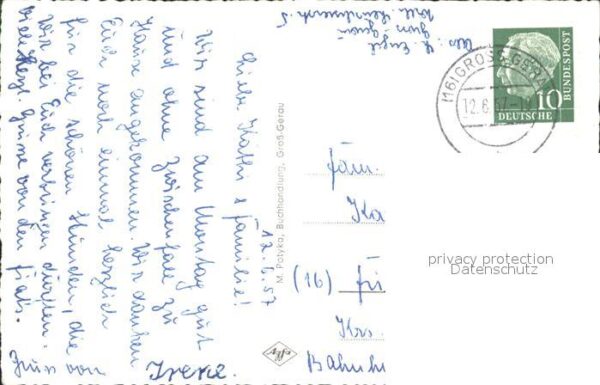 Liebe Käthi & Familie!
12.6.57
Wir sind am Montag gut
und ohne Zwischenfall zu
Hause angekommen. Wir danken
Euch noch einmal herzlich
für die schönen Stunden, die
wir bei Euch verbringen durften.
Viele Grüsse von den
Gruss von Irene.
M. Potyka, Buchhandlung, Groß-Gerau
Abs: Engel
Groß Gerau
(16) GROSS-GER
12.6.57
10
DEUTSCHE
BUNDESPOST
Fam.
Ka
(16) Fri
Krs.
Bahnh
privacy protection
Datenschutz